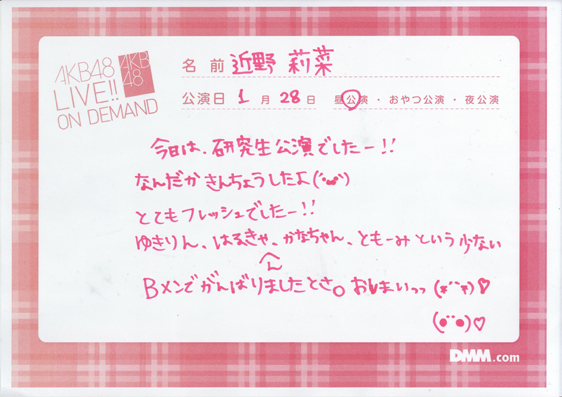 AKB48
LIVE!!
ON DEMAND
AKB
48
名前 近野 莉菜
公演日 1月28日 昼公演・おやつ公演・夜公演
今日は、研究生公演でしたー!!
なんだか きんちょうしたよ(´`)
とてもフレッシュでしたー!!
ゆきりん、はるきゃん、かなちゃん、ともーみ という 少ない
Bメンでがんばりましたとさ。おしまいっっ (*´`*)♡
(●´`●)♡
DMM.com